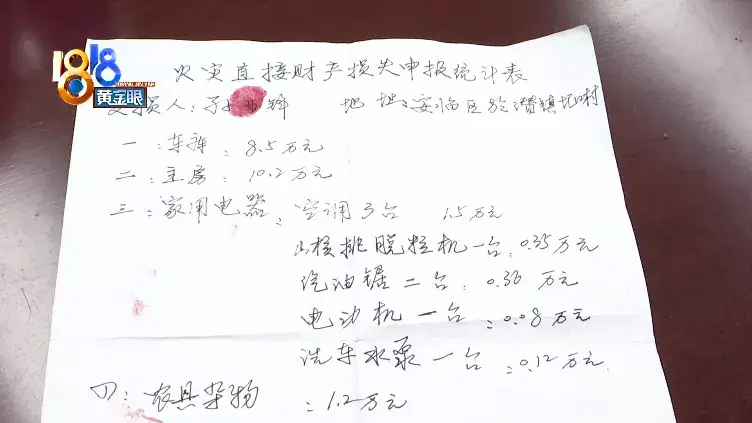 1818
黄金眼
火灾直接财产损失申报统计表
受损人：孙 地址：安临区於潜镇 村
一：车库：8.5万元
二：主房：10.2万元
三：家用电器：空调3台 1.5万元
山核桃脱粒机一台：0.35万元
汽油锯二台：0.36万元
电动机一台：0.08万元
洗车水泵一台：0.12万元
四：农具杂物：1.2万元